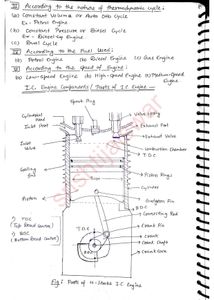 III According to the nature of thermodynamic cycle:
(a) Constant Volume or Auto Sub Cycle
Ex - Petrol Engine
(b) Constant Pressure or Diesel Cycle
Ex - Diesel Engine
(c) Dual Cycle
According to the Fuel Used:
(a) Petrol Engine (b) Diesel Engine (c) Gas Engine
According to the Speed of Engine:
(a) Low-Speed Engine (b) High-Speed Engine (c) Medium-Speed Engine
I.C. Engine Components/Parts of I.C Engine -
Spark Plug
Cylinder Head
Valve Spring
Inlet Port
Exhaust Port
Exhaust Valve
Inlet Valve
Combustion Chamber
T.D.C
Piston Rings
Cylinder
Piston
Gudgeon Pin
B.D.C
Connecting Rod
T.D.C
Crank Pin
Crank
Crank Shaft
Crank Case
1) TDC
(Top Dead Centre)
2) BDC
(Bottom Dead Centre)
Fig: Parts of 4-Stroke I.C Engine